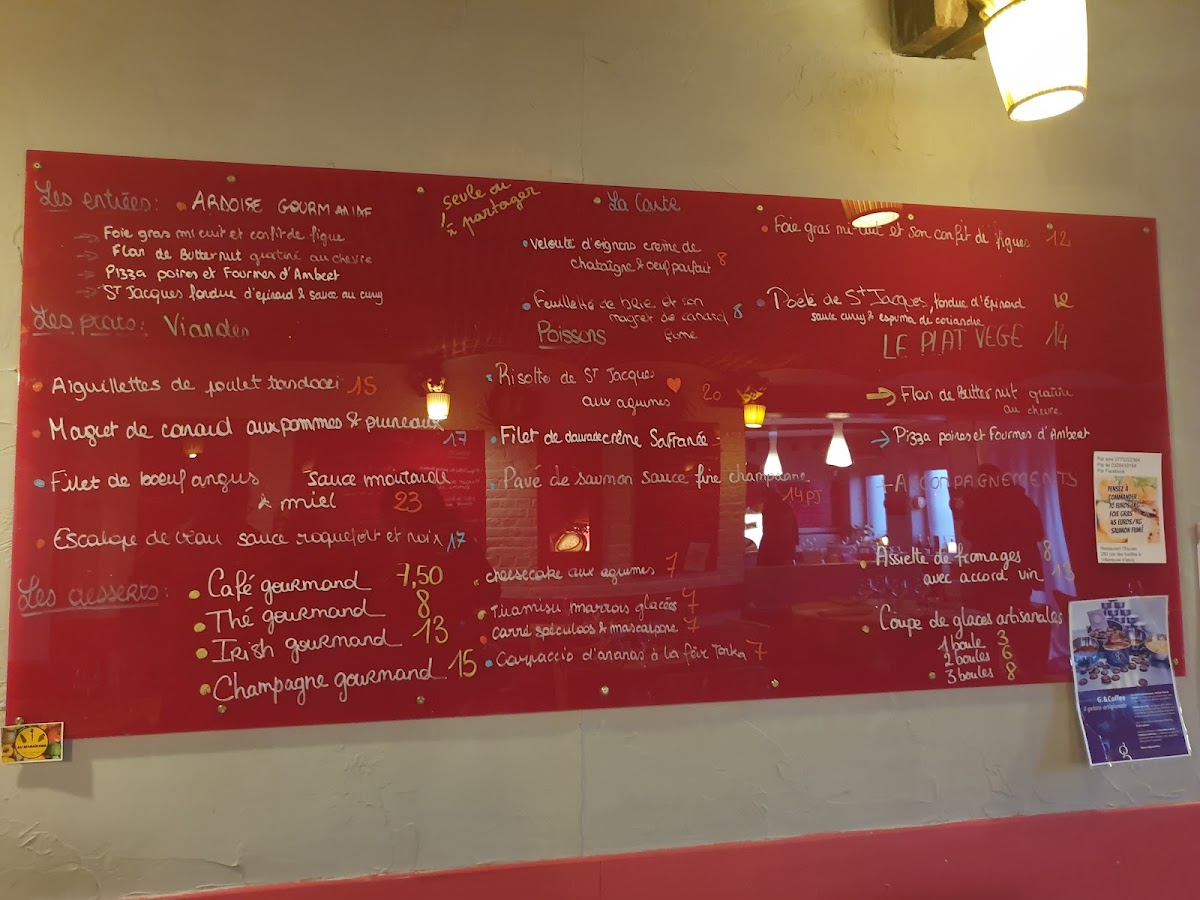 Les entrées: ARDOISE GOURMANDE
seule ou
à partager
Foie gras mi cuit et confit de figue
Flan de Butternut gratiné au chèvre
Pizza poires et Fourmes d'Ambert
St Jacques fondue d'épinard & sauce au curry
La Carte
Velouté d'oignons crème de
chataigne & oeuf parfait 8
Feuilleté de brie et son
magret de canard 8
fumé
Foie gras mi-cuit et son confit de figues 12
Poêlé de St Jacques, fondue d'Epinard 12
sauce curry & espuma de coriandre
Les plats: Viandes
Aiguillettes de poulet tandoori 15
Magret de canard aux pommes & pruneaux
17
Filet de boeuf angus sauce moutarde
& miel 23
Escalope de veau sauce roquefort et noix 17
Poissons
Risotto de St Jacques
aux agrumes 20
Filet de daurade crème Safranée -
Pavé de saumon sauce fine champagne
14PJ
LE PLAT VEGE 14
Flan de Butternut gratiné
au chèvre
Pizza poires et Fourmes d'Ambert
+ACCOMPAGNEMENTS
Les desserts:
Café gourmand 7,50
Thé gourmand 8
Irish gourmand 13
Champagne gourmand 15
cheesecake aux agrumes 7
Tiramisu marrons glacées 7
carré spéculoos & mascarpone 7
Carpaccio d'ananas à la fève Tonka 7
Assiette de fromages 8
avec accord vin
Coupe de glaces artisanales
1 boule 3
2 boules 6
3 boules 8
Par Facebook
PENSEZ À
COMMANDER
FOIE GRAS
45 EUROS/KG
SAUMON FUMÉ
G.&Coffee
il gelato artigianale